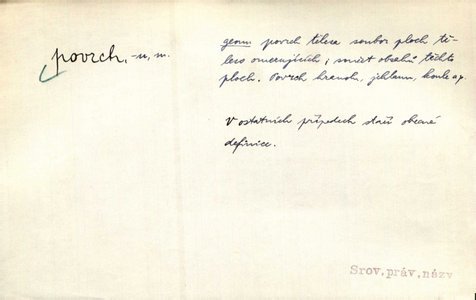 povrch, -u, m.
geom povrch tělesa soubor ploch tě-
leso omezujících; součet obsahů těchto
ploch. Povrch hranolu, jehlanu, koule ap.
V ostatních případech stačí obecná
definice.
Srov. práv. názv